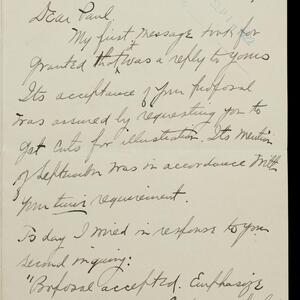 Dear Paul,
My first message took for
granted that was a reply to yours
Its acceptance of your proposal
was assured by requesting you to
get cuts for illustration. Its mention
of September was in accordance with
your time requirement.
Today I wired in response to your
second inquiry:
"Proposal accepted. Emphasize